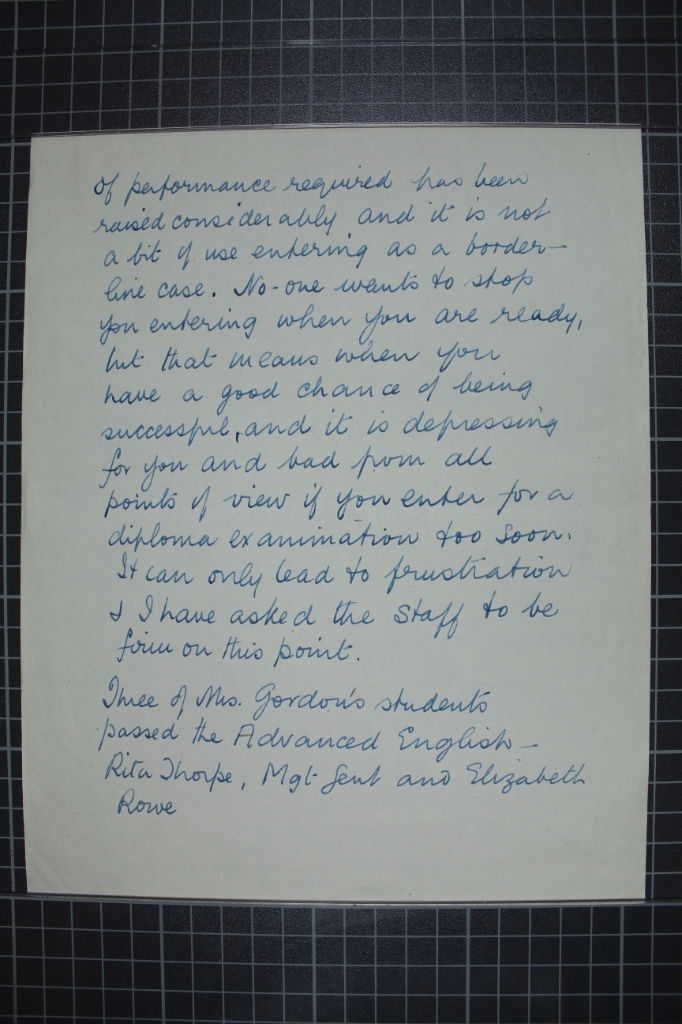 of performance required has been
raised considerably and it is not
a bit of use entering as a border-
line case. No-one wants to stop
you entering when you are ready,
but that means when you
have a good chance of being
successful, and it is depressing
for you and bad from all
points of view if you enter for a
diploma examination too soon.
It can only lead to frustration
& I have asked the staff to be
firm on this point.
Three of Mrs. Gordon's students
passed the Advanced English -
Rita Thorpe, Mgt. Gent and Elizabeth
Rowe